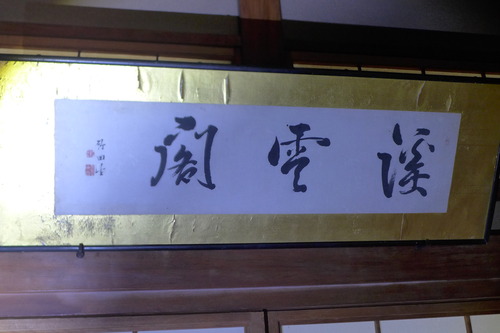 溪雲閣